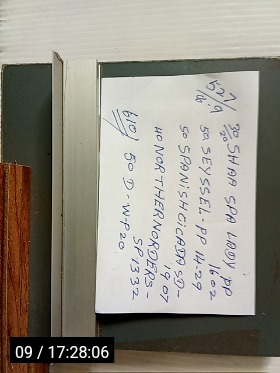 30 SHAA SPA LADY PP
1602
50 SEYSSEL.PP 14-29
50 SPANISHCICADA SD-
907
40 NORTHERNORDERS-
SP1332
610 50 D-WP20
09 / 17:28:06